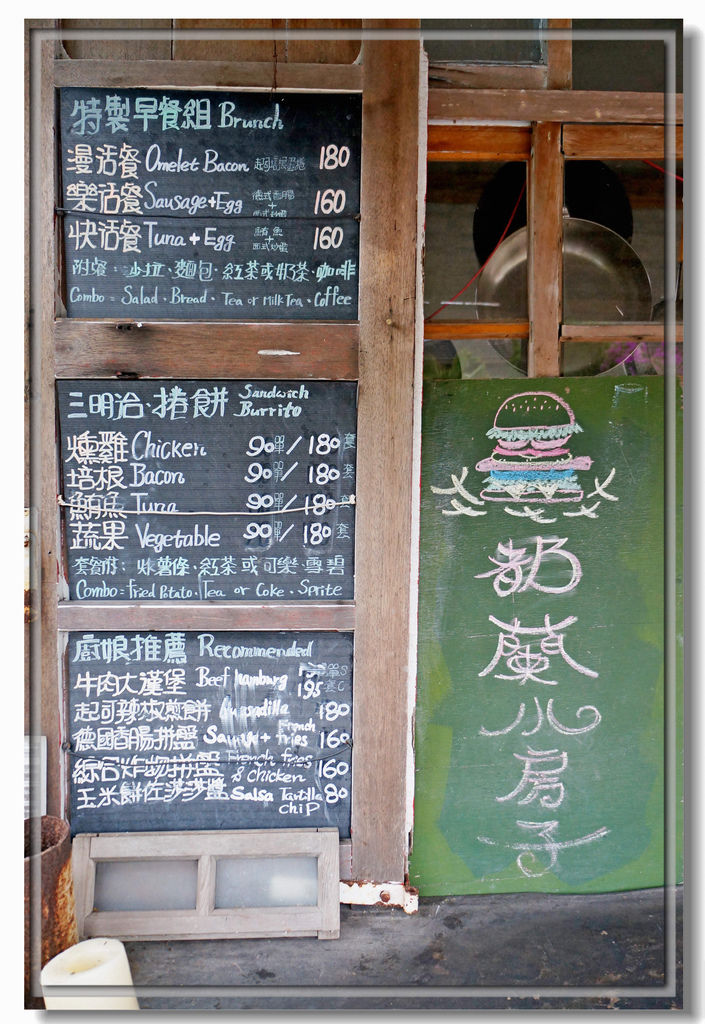 特製早餐組 Brunch
漫活餐 Omelet Bacon 180
樂活餐 Sausage+Egg 德式香腸 + 西式炒蛋 160
快活餐 Tuna + Egg 鮪魚 + 西式炒蛋 160
附餐：沙拉·麵包·紅茶或奶茶·咖啡
Combo = Salad · Bread · Tea or Milk Tea · Coffee
三明治·捲餅 Sandwich Burrito
燻雞 Chicken 90單/180套
培根 Bacon 90單/180套
鮪魚 Tuna 90單/180套
蔬果 Vegetable 90單/180套
套餐附：炸薯條·紅茶或可樂·雪碧
Combo = fried Potato · Tea or Coke · Sprite
廚娘推薦 Recommended
牛肉大漢堡 Beef hamburg 195
起司辣 煎餅 180
德國香腸拼盤 + French fries 160
綜合炸物拼盤 French fries & chicken 160
玉米餅佐莎莎醬 Salsa Tortilla chip 80
都蘭小房子